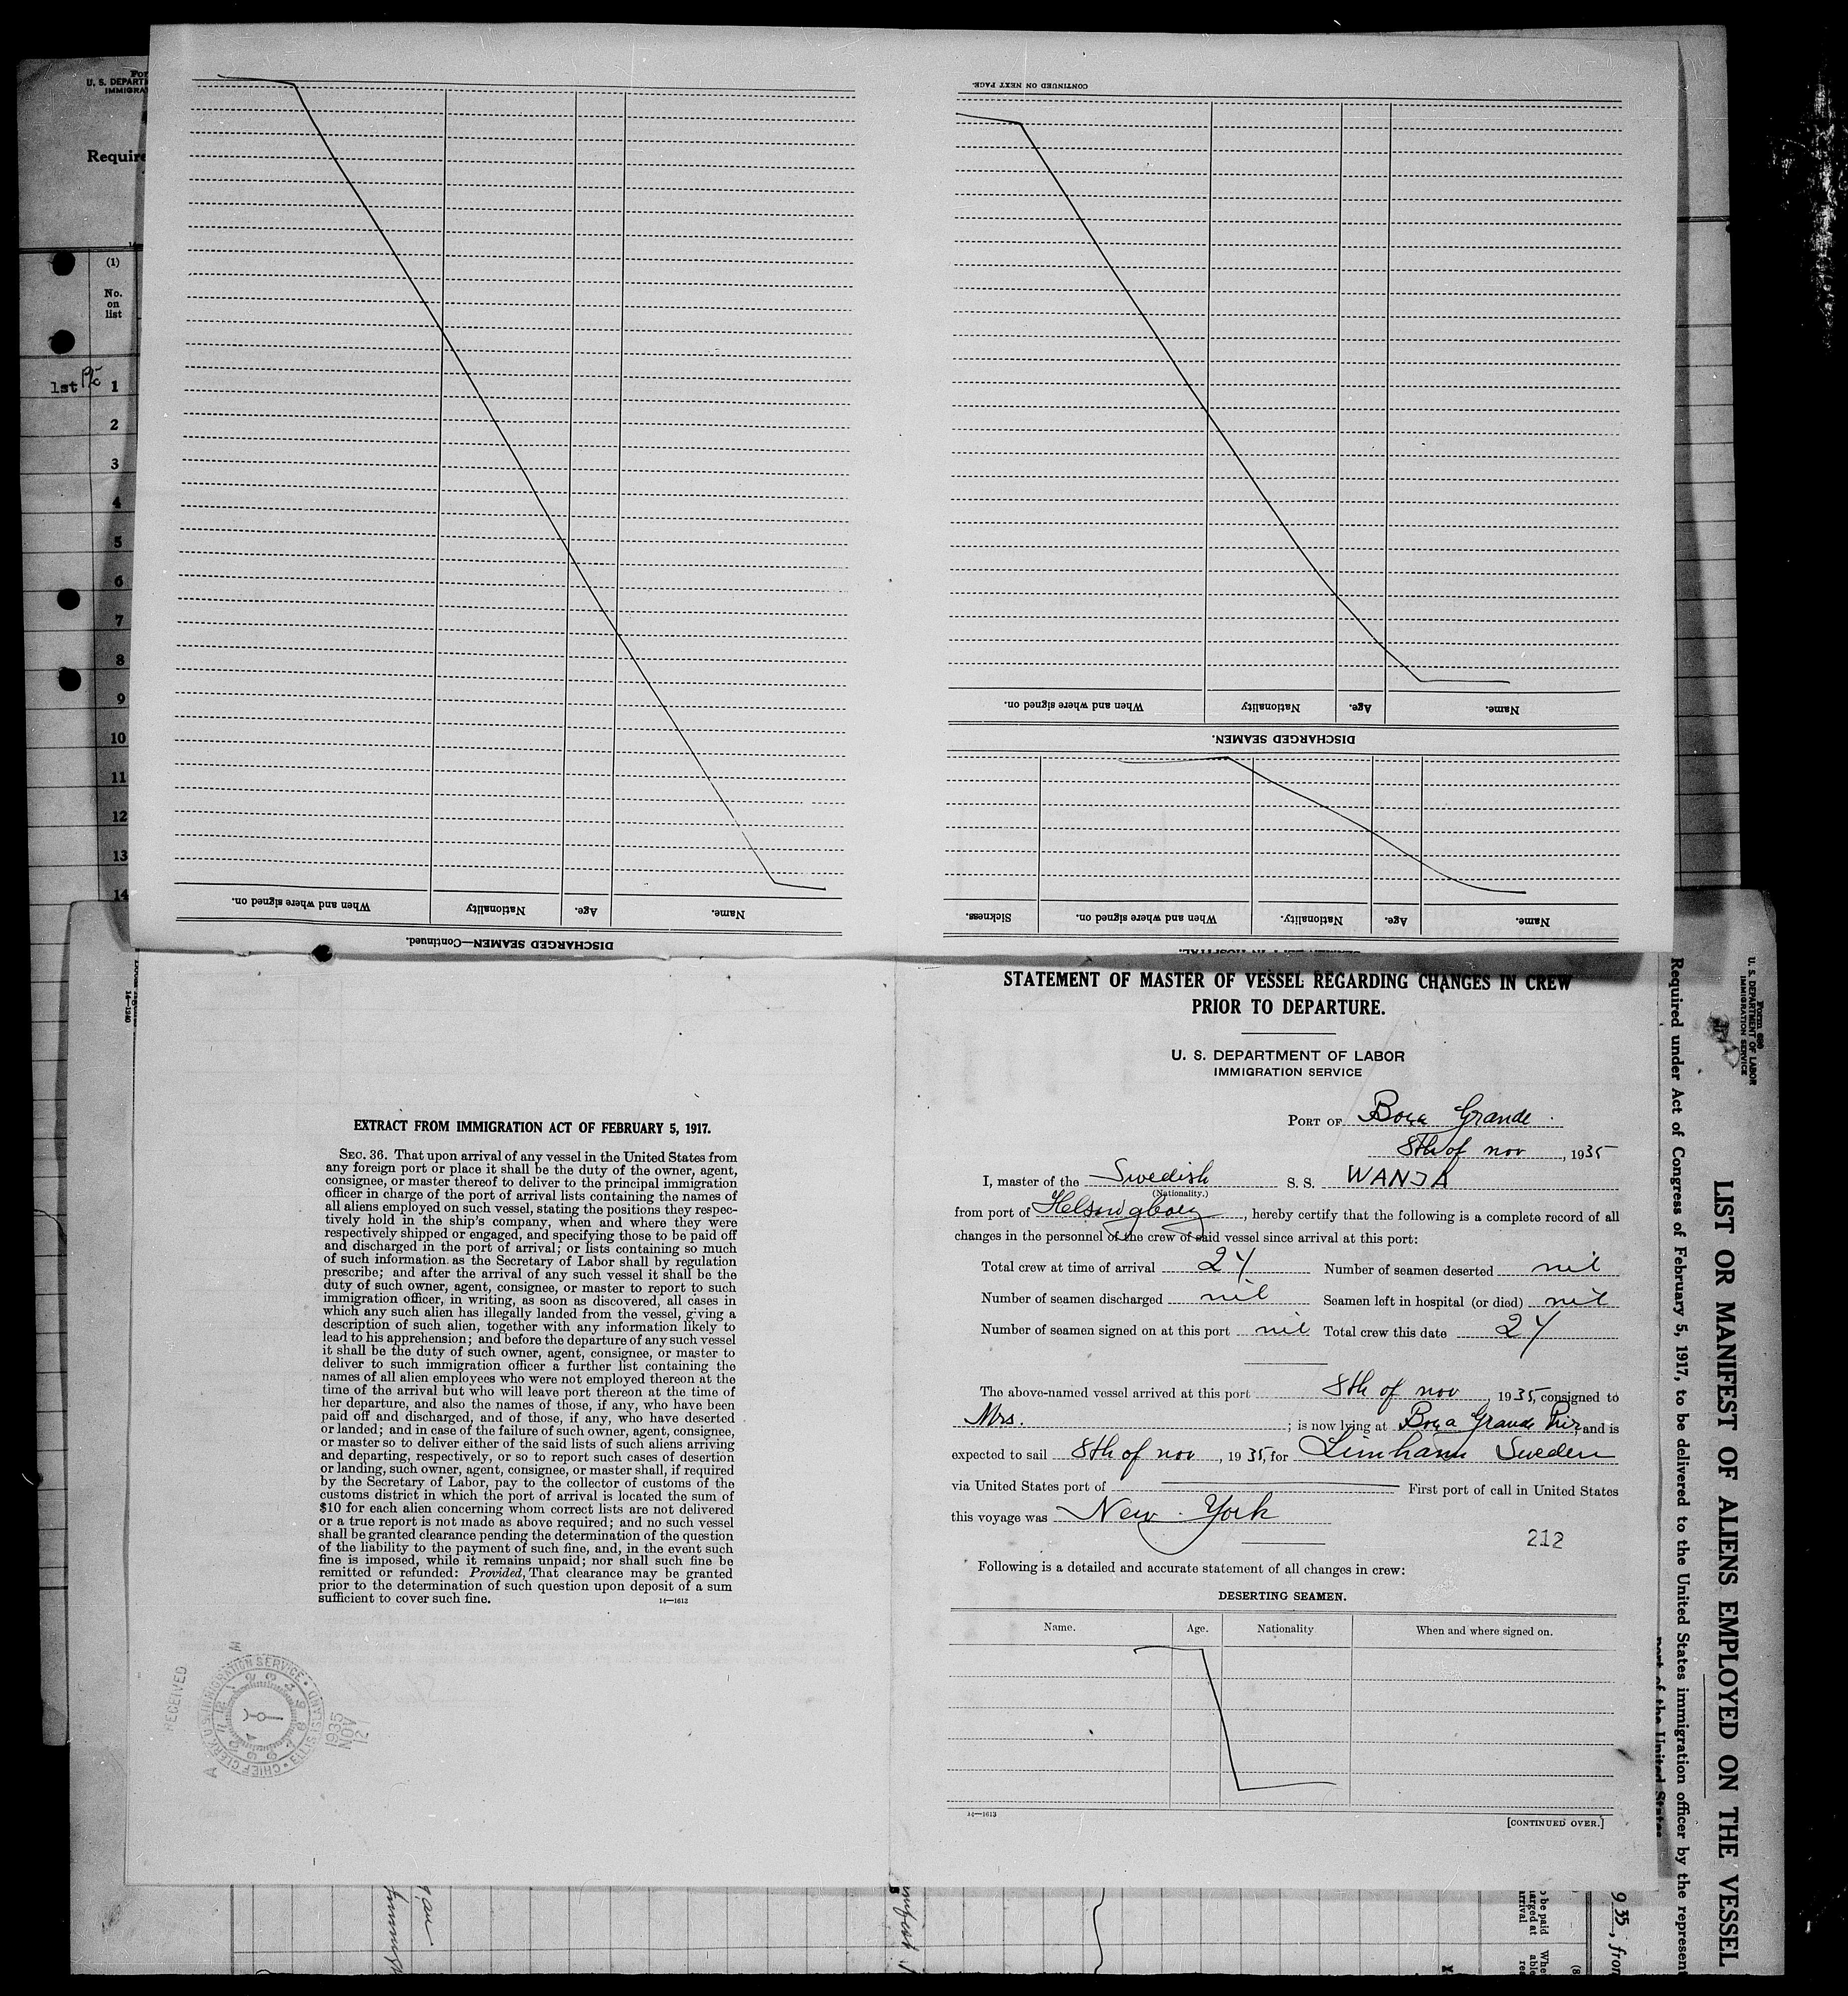 Form
U. S. DEPARTM
IMMIGRA
Require
(1)
No.
on
list
1st
1
2
3
4
5
6
7
8
9
10
11
12
13
14
DISCHARGED SEAMEN—Continued.
Name.
Age.
Nationality
When and where signed on.
SEAMEN LEFT IN HOSPITAL.
Name.
Age.
Nationality.
When and where signed on.
Sickness.
DISCHARGED SEAMEN.
Name.
Age.
Nationality
When and where signed on.
CONTINUED ON NEXT PAGE.
14—1240
EXTRACT FROM IMMIGRATION ACT OF FEBRUARY 5, 1917.
SEC. 36. That upon arrival of any vessel in the United States from
any foreign port or place it shall be the duty of the owner, agent,
consignee, or master thereof to deliver to the principal immigration
officer in charge of the port of arrival lists containing the names of
all aliens employed on such vessel, stating the positions they respec-
tively hold in the ship's company, when and where they were
respectively shipped or engaged, and specifying those to be paid off
and discharged in the port of arrival; or lists containing so much
of such information as the Secretary of Labor shall by regulation
prescribe; and after the arrival of any such vessel it shall be the
duty of such owner, agent, consignee, or master to report to such
immigration officer, in writing, as soon as discovered, all cases in
which any such alien has illegally landed from the vessel, giving a
description of such alien, together with any information likely to
lead to his apprehension; and before the departure of any such vessel
it shall be the duty of such owner, agent, consignee, or master to
deliver to such immigration officer a further list containing the
names of all alien employees who were not employed thereon at the
time of the arrival but who will leave port thereon at the time of
her departure, and also the names of those, if any, who have been
paid off and discharged, and of those, if any, who have deserted
or landed; and in case of the failure of such owner, agent, consignee,
or master so to deliver either of the said lists of such aliens arriving
and departing, respectively, or so to report such cases of desertion
or landing, such owner, agent, consignee, or master shall, if required
by the Secretary of Labor, pay to the collector of customs of the
customs district in which the port of arrival is located the sum of
$10 for each alien concerning whom correct lists are not delivered
or a true report is not made as above required; and no such vessel
shall be granted clearance pending the determination of the question
of the liability to the payment of such fine, and, in the event such
fine is imposed, while it remains unpaid; nor shall such fine be
remitted or refunded: Provided, That clearance may be granted
prior to the determination of such question upon deposit of a sum
sufficient to cover such fine.
14—1613
RECEIVED
CHIEF CLERK U.S. IMMIGRATION SERVICE • ELLIS ISLAND
1935
NOV
12
STATEMENT OF MASTER OF VESSEL REGARDING CHANGES IN CREW
PRIOR TO DEPARTURE.
U. S. DEPARTMENT OF LABOR
IMMIGRATION SERVICE
PORT OF Boca Grande
8th of nov, 1935
I, master of the Swedish S. S. WANJA
(Nationality.)
from port of Helsingborg, hereby certify that the following is a complete record of all
changes in the personnel of the crew of said vessel since arrival at this port:
Total crew at time of arrival 24 Number of seamen deserted nil
Number of seamen discharged nil Seamen left in hospital (or died) nil
Number of seamen signed on at this port nil Total crew this date 24
The above-named vessel arrived at this port 8th of nov, 1935, consigned to
Mrs. ; is now lying at Boca Grande Pier and is
expected to sail 8th of nov, 1935, for Limhamn Sweden
via United States port of First port of call in United States
this voyage was New York
212
Following is a detailed and accurate statement of all changes in crew:
DESERTING SEAMEN.
Name. Age. Nationality When and where signed on.
14—1613
[CONTINUED OVER.]
Form 680
U. S. DEPARTMENT OF LABOR
IMMIGRATION SERVICE
LIST OR MANIFEST OF ALIENS EMPLOYED ON THE VESSEL
Required under Act of Congress of February 5, 1917, to be delivered to the United States immigration officer by the represent
port of the United States
935, from
o be paid
arged at
rrival
(8